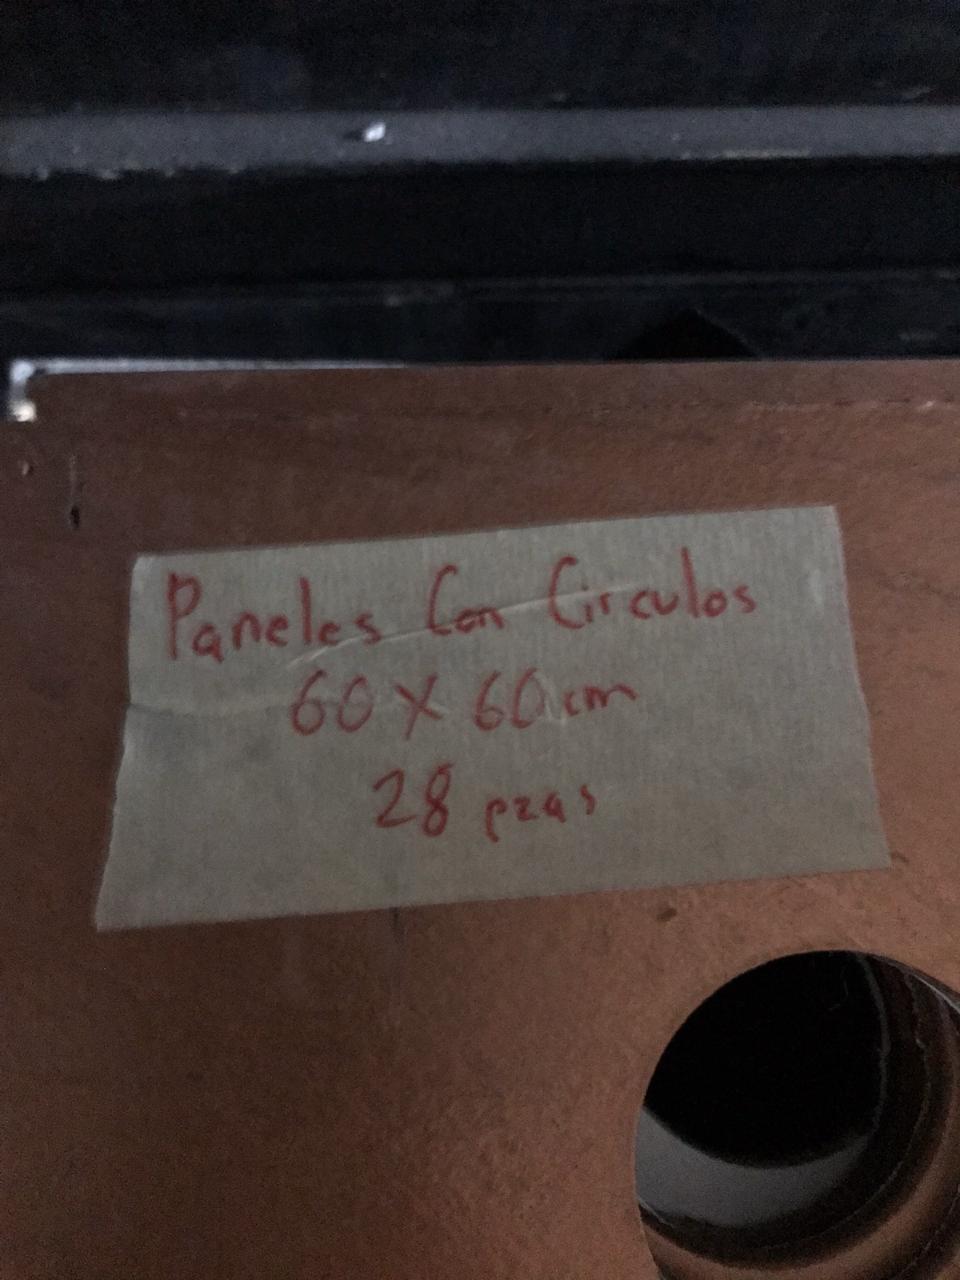 Paneles Con Circulos
60 X 60 cm
28 pzas